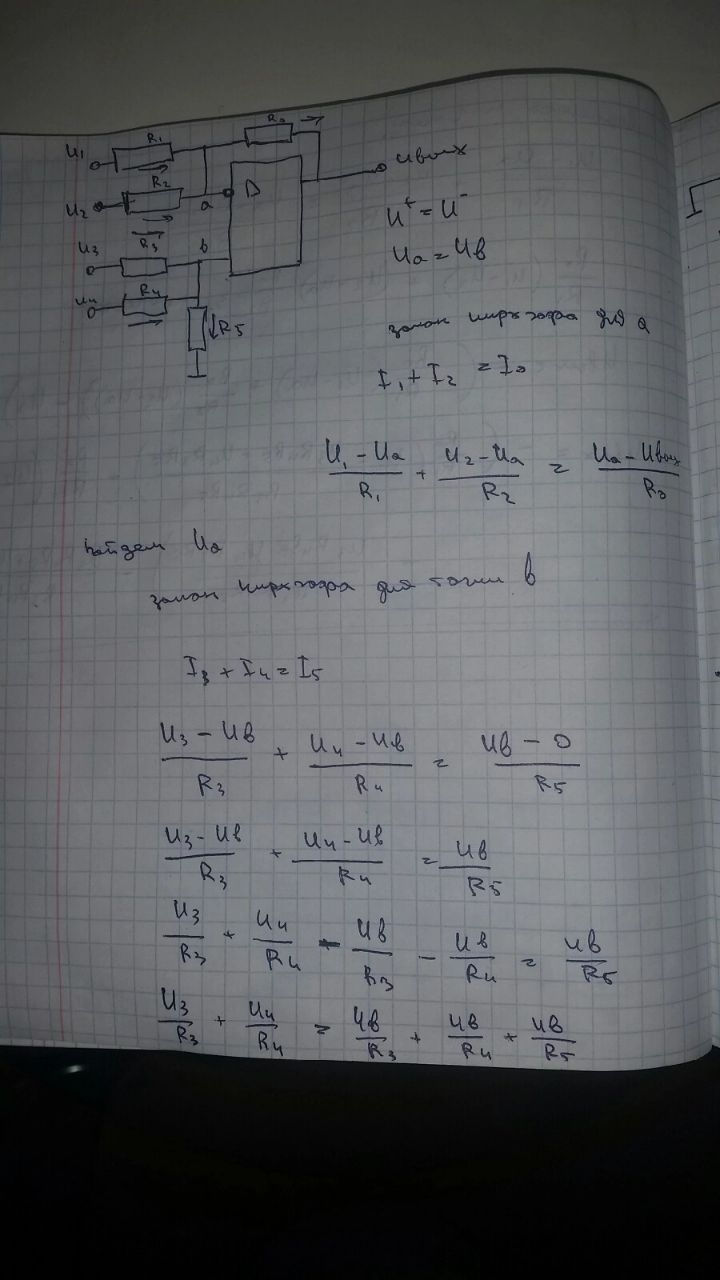 U1 R1 R0
Uвых
U2 R2 a D
U⁺ = U⁻
U3 R3 b
Ua = Uв
U4 R4
R5
закон кирхгофа для a
I1 + I2 = I0
(U1 - Ua)/R1 + (U2 - Ua)/R2 = (Ua - Uвых)/R0
найдем Ua
закон кирхгофа для точки b
I3 + I4 = I5
(U3 - Uв)/R3 + (U4 - Uв)/R4 = (Uв - 0)/R5
(U3 - Uв)/R3 + (U4 - Uв)/R4 = Uв/R5
U3/R3 + U4/R4 - Uв/R3 - Uв/R4 = Uв/R5
U3/R3 + U4/R4 = Uв/R3 + Uв/R4 + Uв/R5